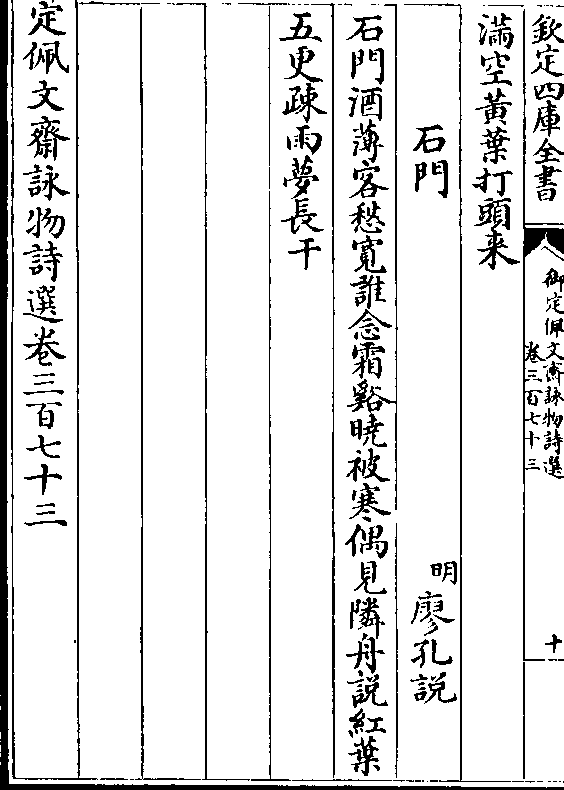 欽定四庫全書
御定佩文齋詠物詩選
卷三百七十三
十
滿空黃葉打頭來
石門
明
廖孔說
石門酒薄客愁寬誰念霜谿曉被寒偶見隣舟說紅葉
五更疎雨夢長干
定佩文齋詠物詩選卷三百七十三